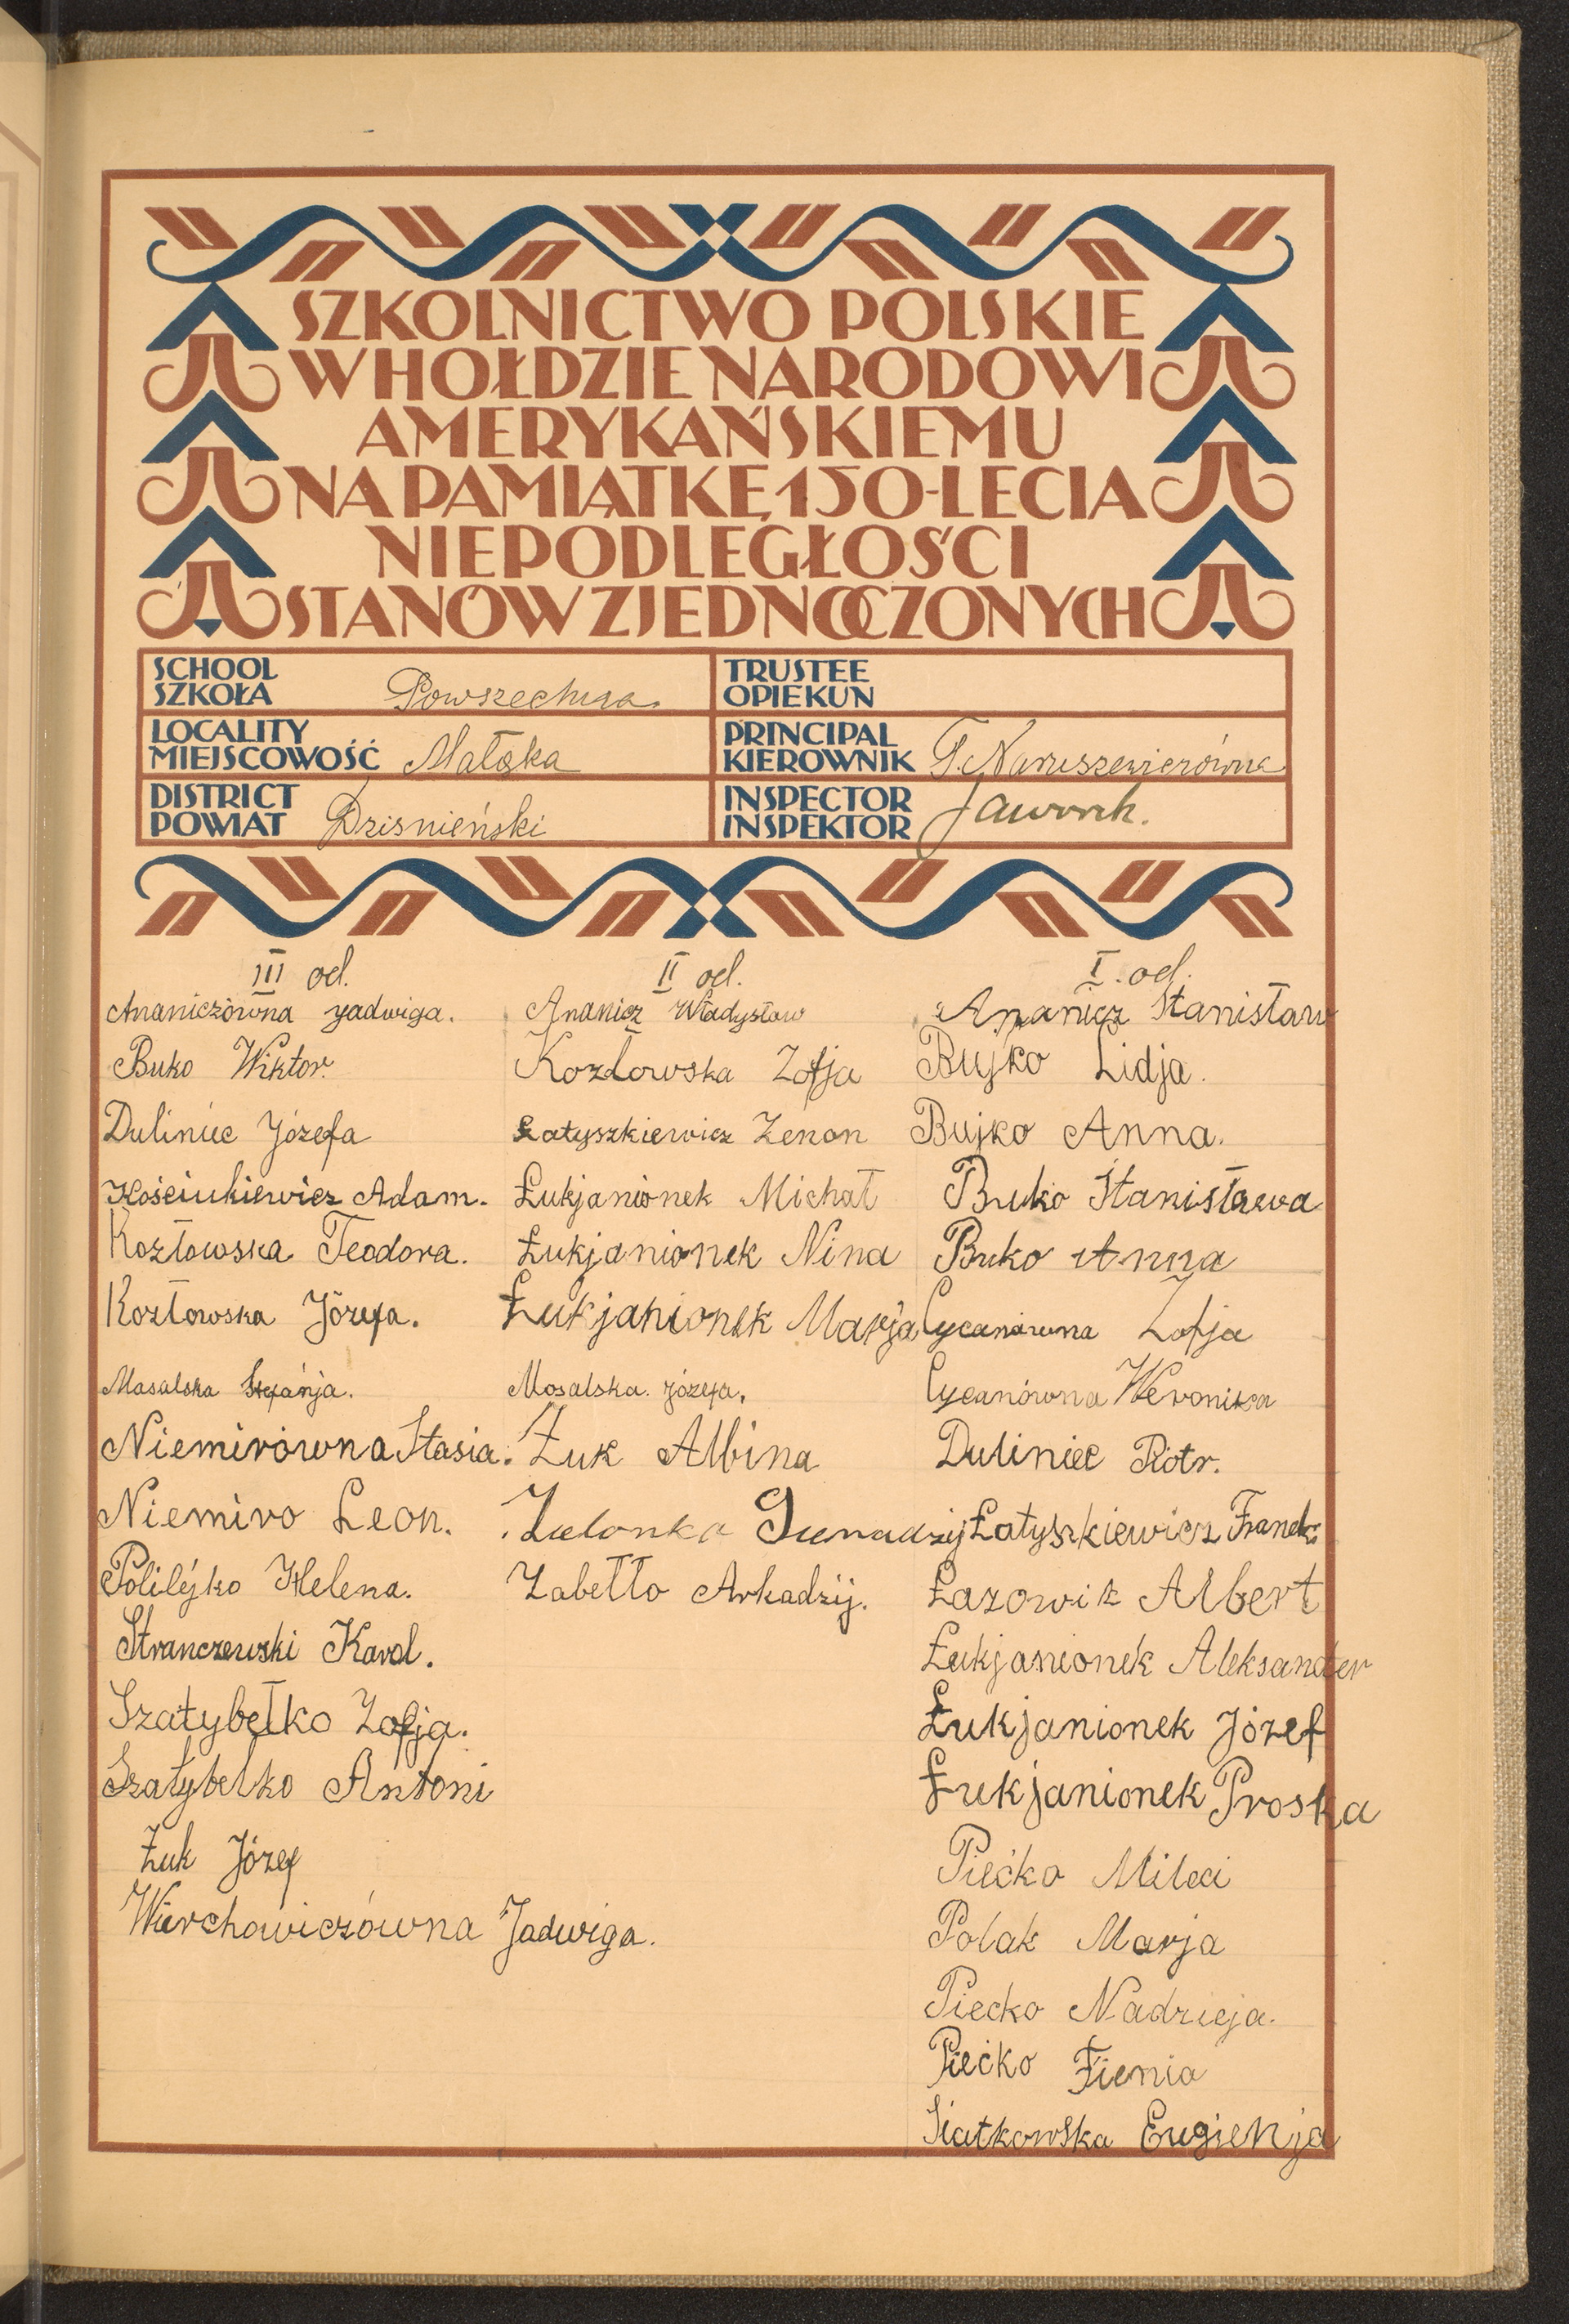 SZKOLNICTWO POLSKIE
W HOŁDZIE NARODOWI
AMERYKAŃSKIEMU
NA PAMIĄTKĘ 150-LECIA
NIEPODLEGŁOŚCI
STANÓW ZJEDNOCZONYCH
SCHOOL
SZKOŁA Powszechna
TRUSTEE
OPIEKUN
LOCALITY
MIEJSCOWOŚĆ Małoka
PRINCIPAL
KIEROWNIK T. Naruszewiczówna
DISTRICT
POWIAT Dziśnieński
INSPECTOR
INSPEKTOR Jaworek.
III od.
Ananiczówna Jadwiga.
Buko Wiktor.
Duliniec Józefa
Kościukiewicz Adam.
Kozłowska Teodora.
Kozłowska Józefa.
Masalska Stefanja.
Niemirówna Stasia.
Niemiro Leon.
Polilejko Helena.
Stranczewski Karol.
Szatybełko Zofja.
Szatybełko Antoni
Żuk Józef
Wierchowiczówna Jadwiga.
II od.
Ananicz Władysław
Kozłowska Zofja
Łatyszkiewicz Zenon
Łukjanionek Michał
Łukjanionek Nina
Łukjanionek Marja
Mosalska Józefa.
Żuk Albina
Zielonka Gienadzij
Zabełło Arkadzij.
I. od.
Ananicz Stanisław
Bujko Lidja.
Bujko Anna.
Buko Stanisława
Buko Anna
Cycanówna Zofja
Cycanówna Weronika
Duliniec Piotr.
Łatyszkiewicz Franek
Łazowik Albert
Łukjanionek Aleksander
Łukjanionek Józef
Łukjanionek Proska
Piećko Mileci
Polak Marja
Piecko Nadzieja.
Piećko Fienia
Siatkowska Eugienja